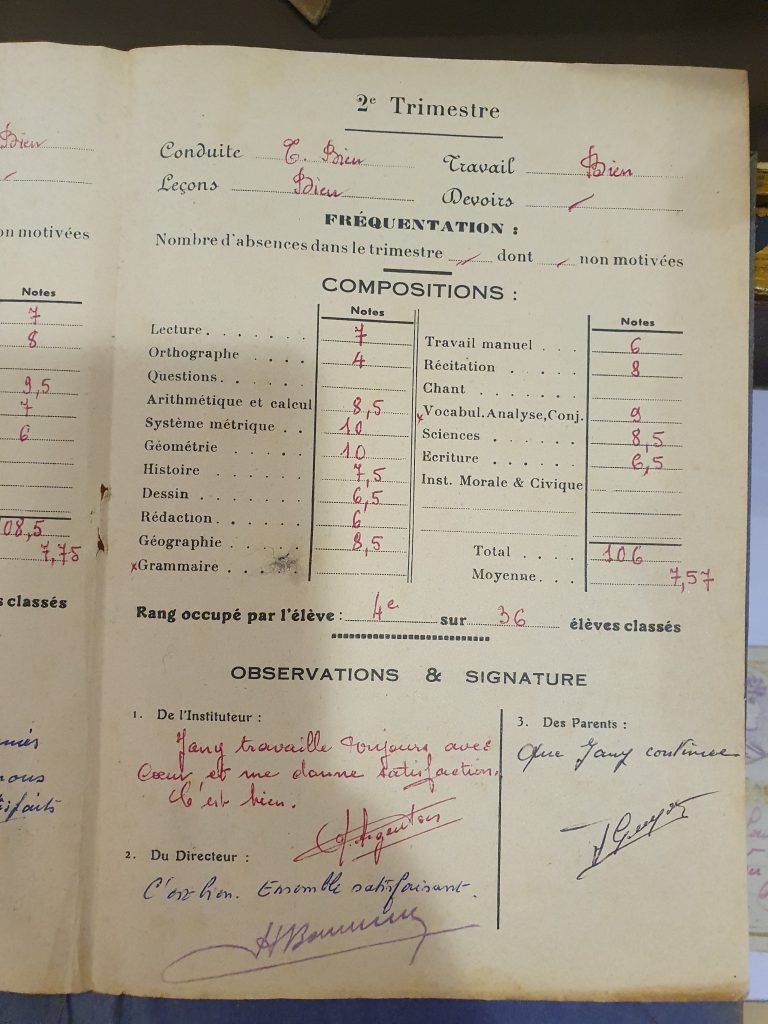 Bien
on motivées
Notes
7
8
9,5
7
6
08,5
7,75
s classés
ous
isfaits
2e Trimestre
Conduite T. Bien Travail Bien
Leçons Bien Devoirs
FRÉQUENTATION :
Nombre d'absences dans le trimestre dont non motivées
COMPOSITIONS :
Notes
Lecture 7
Orthographe 4
Questions
Arithmétique et calcul 8,5
Système métrique 10
Géométrie 10
Histoire 7,5
Dessin 6,5
Rédaction 6
Géographie 8,5
x Grammaire
Notes
Travail manuel 6
Récitation 8
Chant
x Vocabul. Analyse, Conj. 9
Sciences 8,5
Ecriture 6,5
Inst. Morale & Civique
Total 106
Moyenne 7,57
Rang occupé par l'élève : 4e sur 36 élèves classés
OBSERVATIONS & SIGNATURE
1. De l'Instituteur :
Jany travaille toujours avec
cœur et me donne satisfaction.
C'est bien.
2. Du Directeur :
C'est bien. Ensemble satisfaisant.
3. Des Parents :
Que Jany continue